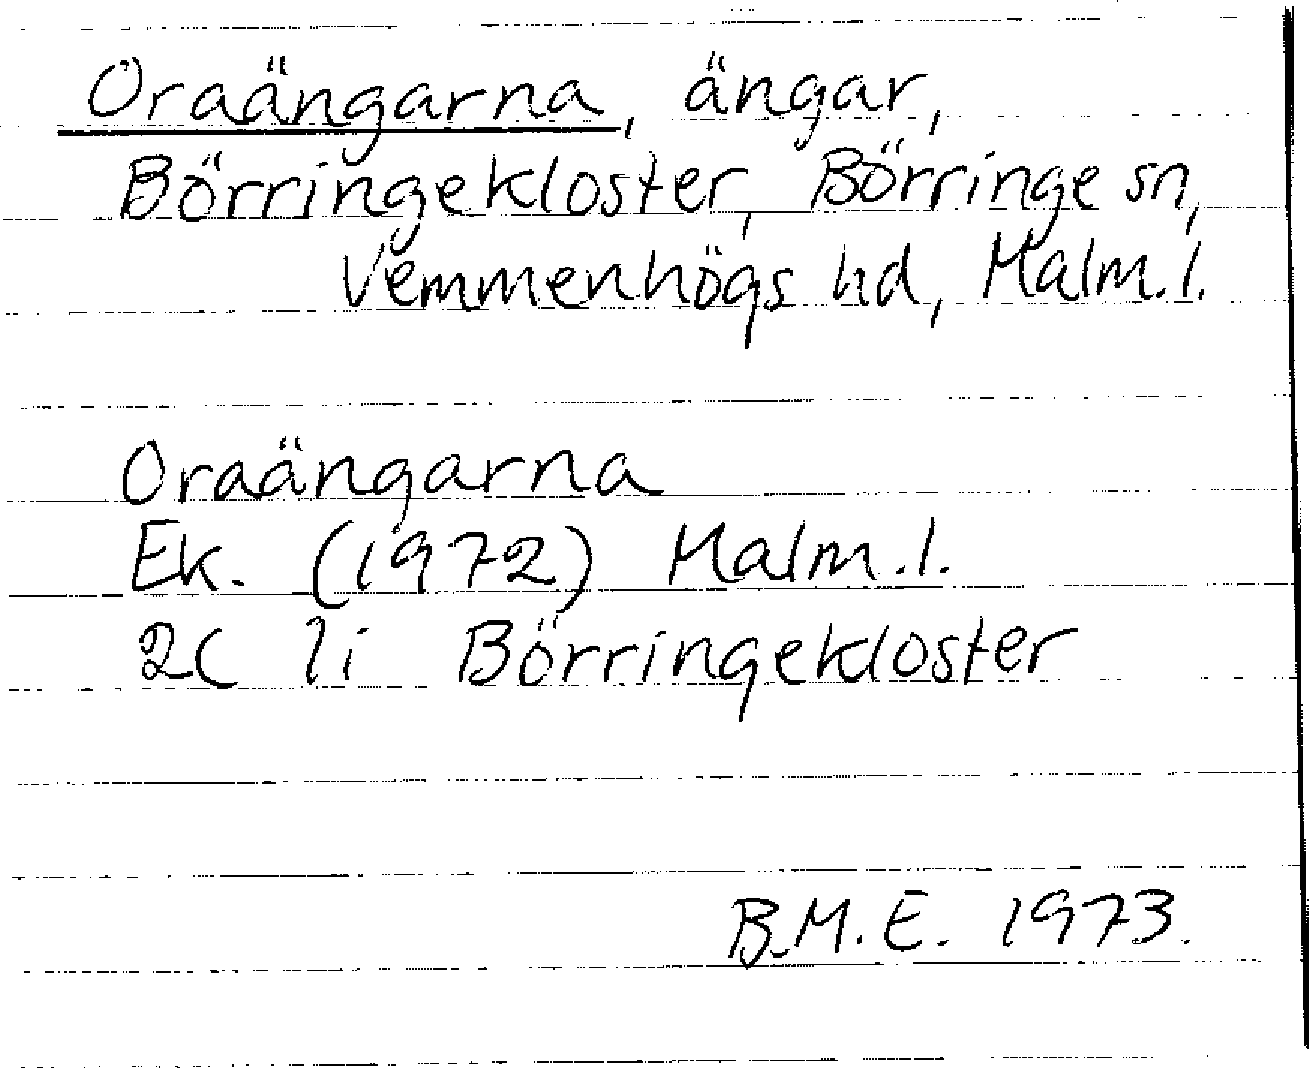 Oraängarna, ängar,
Börringekloster, Börringe sn,
Vemmenhögs hd, Malm.l.
Oraängarna
Ek. (1972) Malm.l.
2C 1i Börringekloster
B.M.E. 1973.